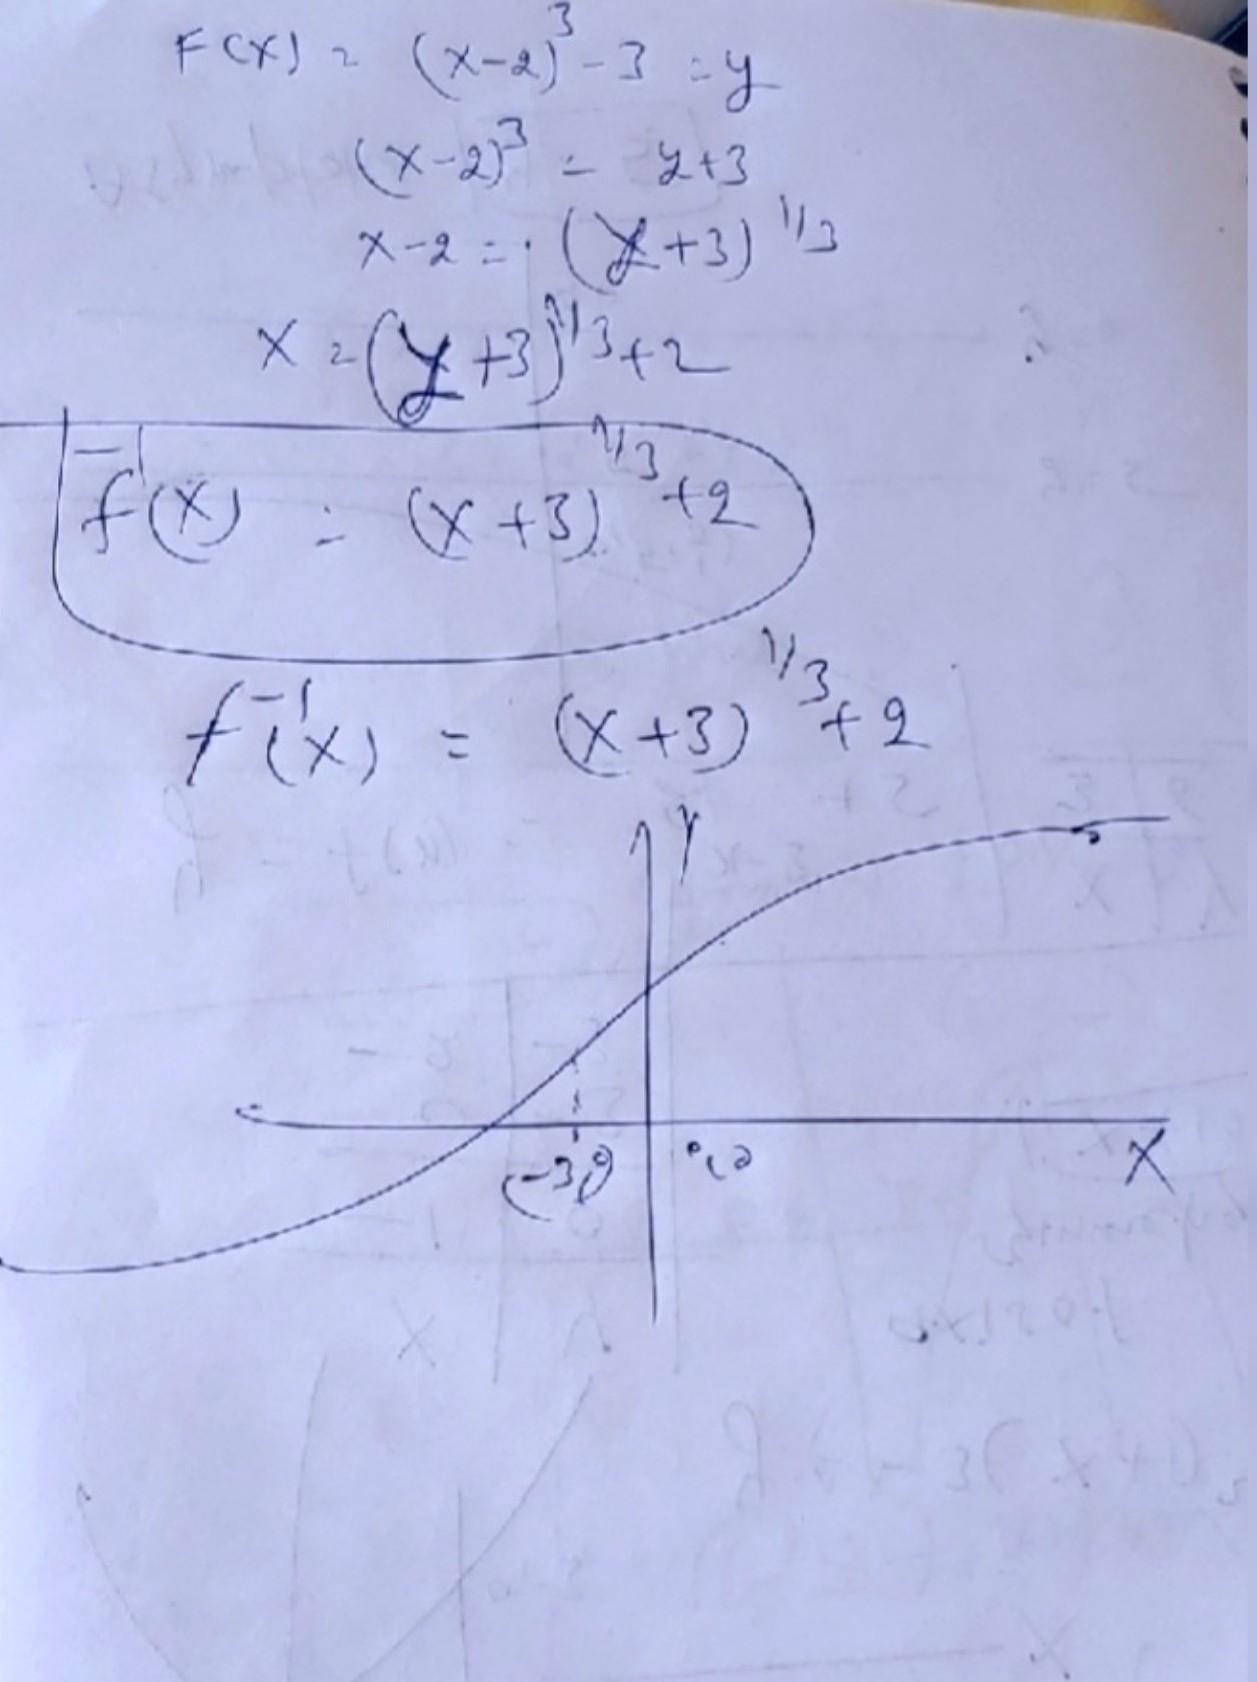 F(x) = (x-2)³ - 3 = y
(x-2)³ = y+3
x-2 = (y+3)^1/3
x = (y+3)^1/3 + 2
f⁻¹(x) = (x+3)^1/3 + 2
f⁻¹(x) = (x+3)^1/3 + 2
y
(-3,0) 0,0
x